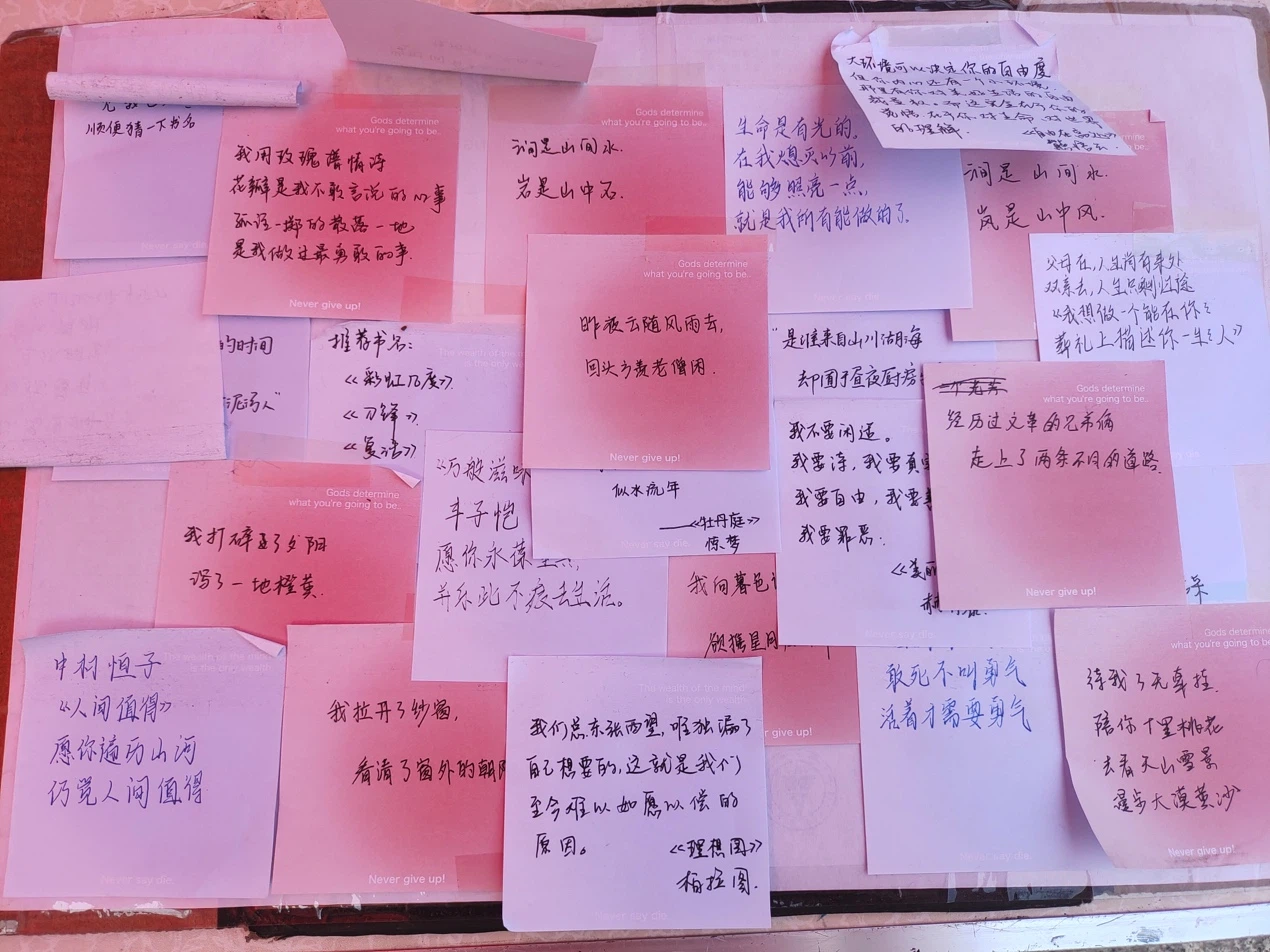 顺便猜一下书名
Gods determine
what you're going to be..
我用玫瑰谱情诗
花瓣是我不敢言说的心事
孤注一掷的散落一地
是我做过最勇敢的事.
Never give up!
Gods determine
what you're going to be..
涧是山间水.
岩是山中石.
生命是有光的.
在我熄灭以前,
能够照亮一点,
就是我所有能做的了.
大环境可以决定你的自由度
但你内心还有一个小环境,
的理解.
涧是山间水.
岚是山中风.
父母在,人生尚有来处
双亲去,人生只剩归途
《我想做一个能在你的
葬礼上描述你一生的人》
的时间
推荐书名:
《彩虹几度》.
《刀锋》.
《复活》
Gods determine
what you're going to be..
昨夜云随风雨去,
回头方羡老僧闲.
Never give up!
"是谁来自山川湖海
却囿于昼夜厨房
我不要闲适。
我要诗,我要真
我要自由,我要
我要罪恶.
Gods determine
what you're going to be..
经历过文革的兄弟俩
走上了两条不同的道路.
Never give up!
Gods determine
what you're going to be..
我打碎了夕阳
泻了一地橙黄.
《万般滋味
丰子恺
愿你永葆
并乐此不疲去生活。
似水流年
——《牡丹庭》
惊梦
Never say die.
我向暮色
欲揽星月
中村恒子
《人间值得》
愿你遍历山河
仍觉人间值得
Never say die.
我拉开了纱窗,
看清了窗外的朝阳
Never give up!
The wealth of the mind
is the only wealth.
我们总东张西望,唯独漏了
自己想要的,这就是我们
至今难以如愿以偿的
原因。
《理想国》
柏拉图.
Never say die.
敢死不叫勇气
活着才需要勇气
Never say die.
Gods determine
what you're going to be..
待我了无牵挂.
陪你十里桃花
去看天山雪景
漫步大漠黄沙
Never give up!